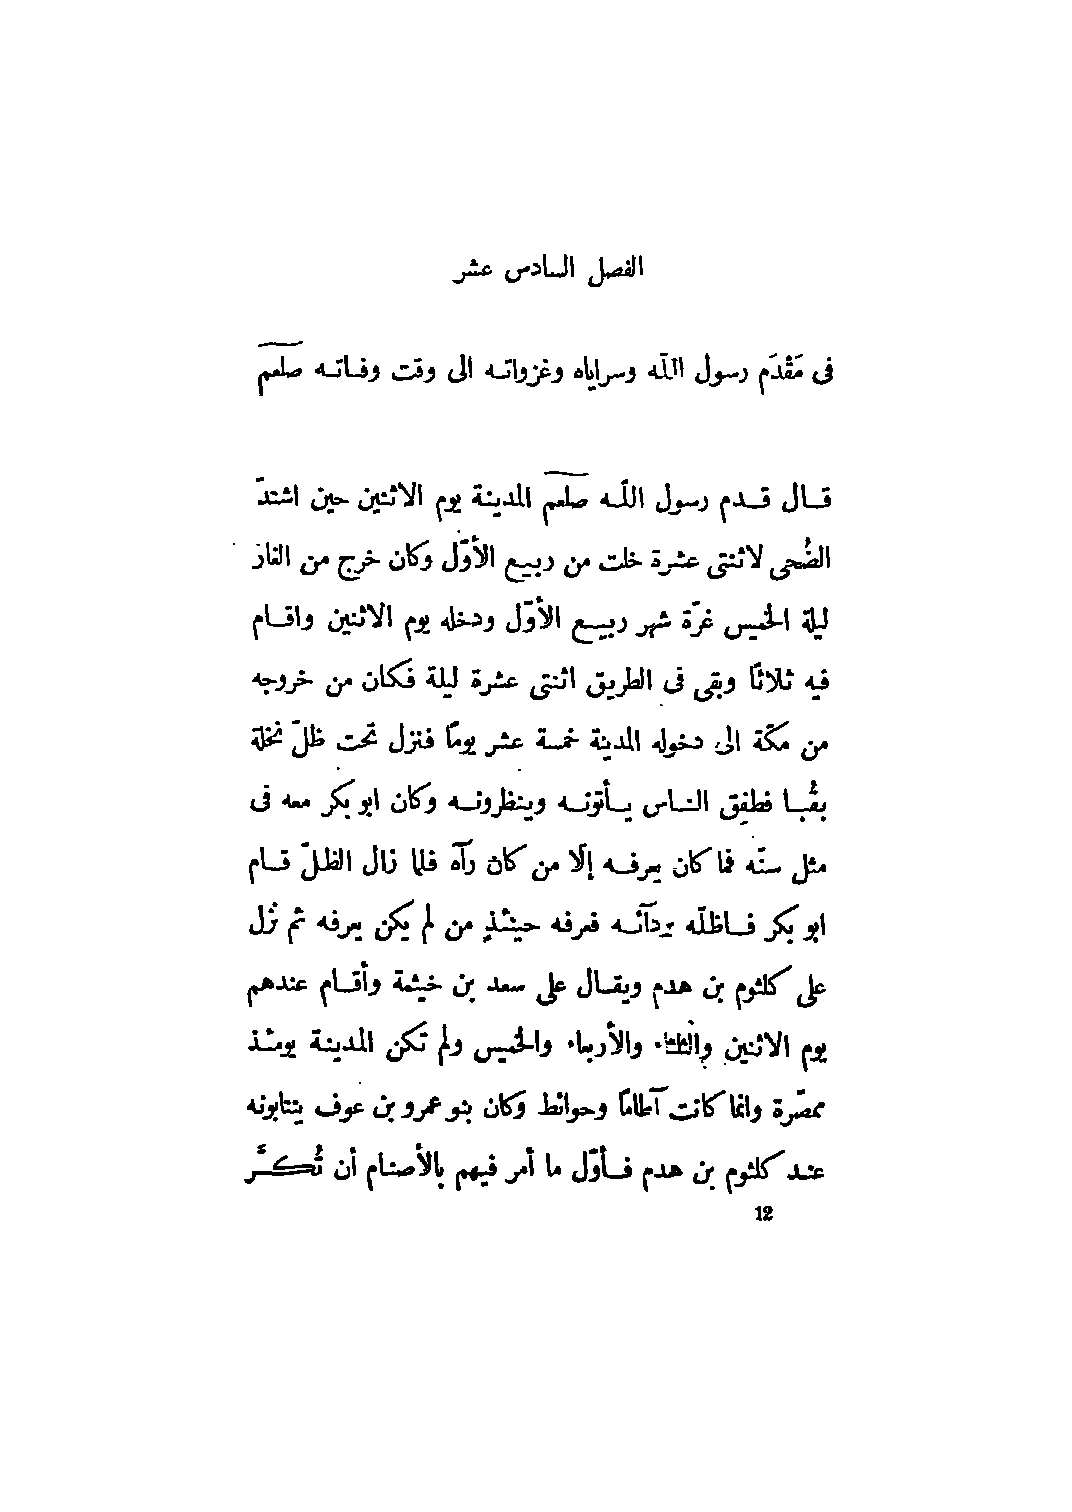 الفصل السادس عشر
فى مَقْدَم رسول اللّه وسراياه وغزواتـه الى وقت وفـاتـه صلعم
قـال قـدم رسول اللّـه صلعم المدينة يوم الاثنين حين اشتدّ
الضُحى لاثنتى عشرة خلت من ربيع الأوّل وكان خرج من الغار
ليلة الخميس غرّة شهر ربيـع الأوّل ودخله يوم الاثنين واقـام
فيه ثلاثًا وبقى فى الطريق اثنتى عشرة ليلة فكان من خروجه
من مكّة الى دخوله المدينة خمسة عشر يومًا فنزل تحت ظلّ نخلة
بقُبـا فطفِق النـاس يـأتونـه وينظرونـه وكان ابو بكر معه فى
مثل سنّه فما كان يعرفـه إلّا من كان رآه فلما زال الظلّ قـام
ابو بكر فـاظلّه بردآئـه فعرفه حينئذٍ من لم يكن يعرفه ثم نزل
على كلثوم بن هدم ويقـال على سعد بن خيثمة وأقـام عندهم
يوم الاثنين والثلثاء والأربعاء والخميس ولم تكن المدينة يومئـذ
ممصّرة وانما كانت آطامًا وحوائط وكان بنو عمرو بن عوف ينتابونه
عنـد كلثوم بن هدم فـأوّل ما أمر فيهم بالأصنـام أن تُكـسَّر
12